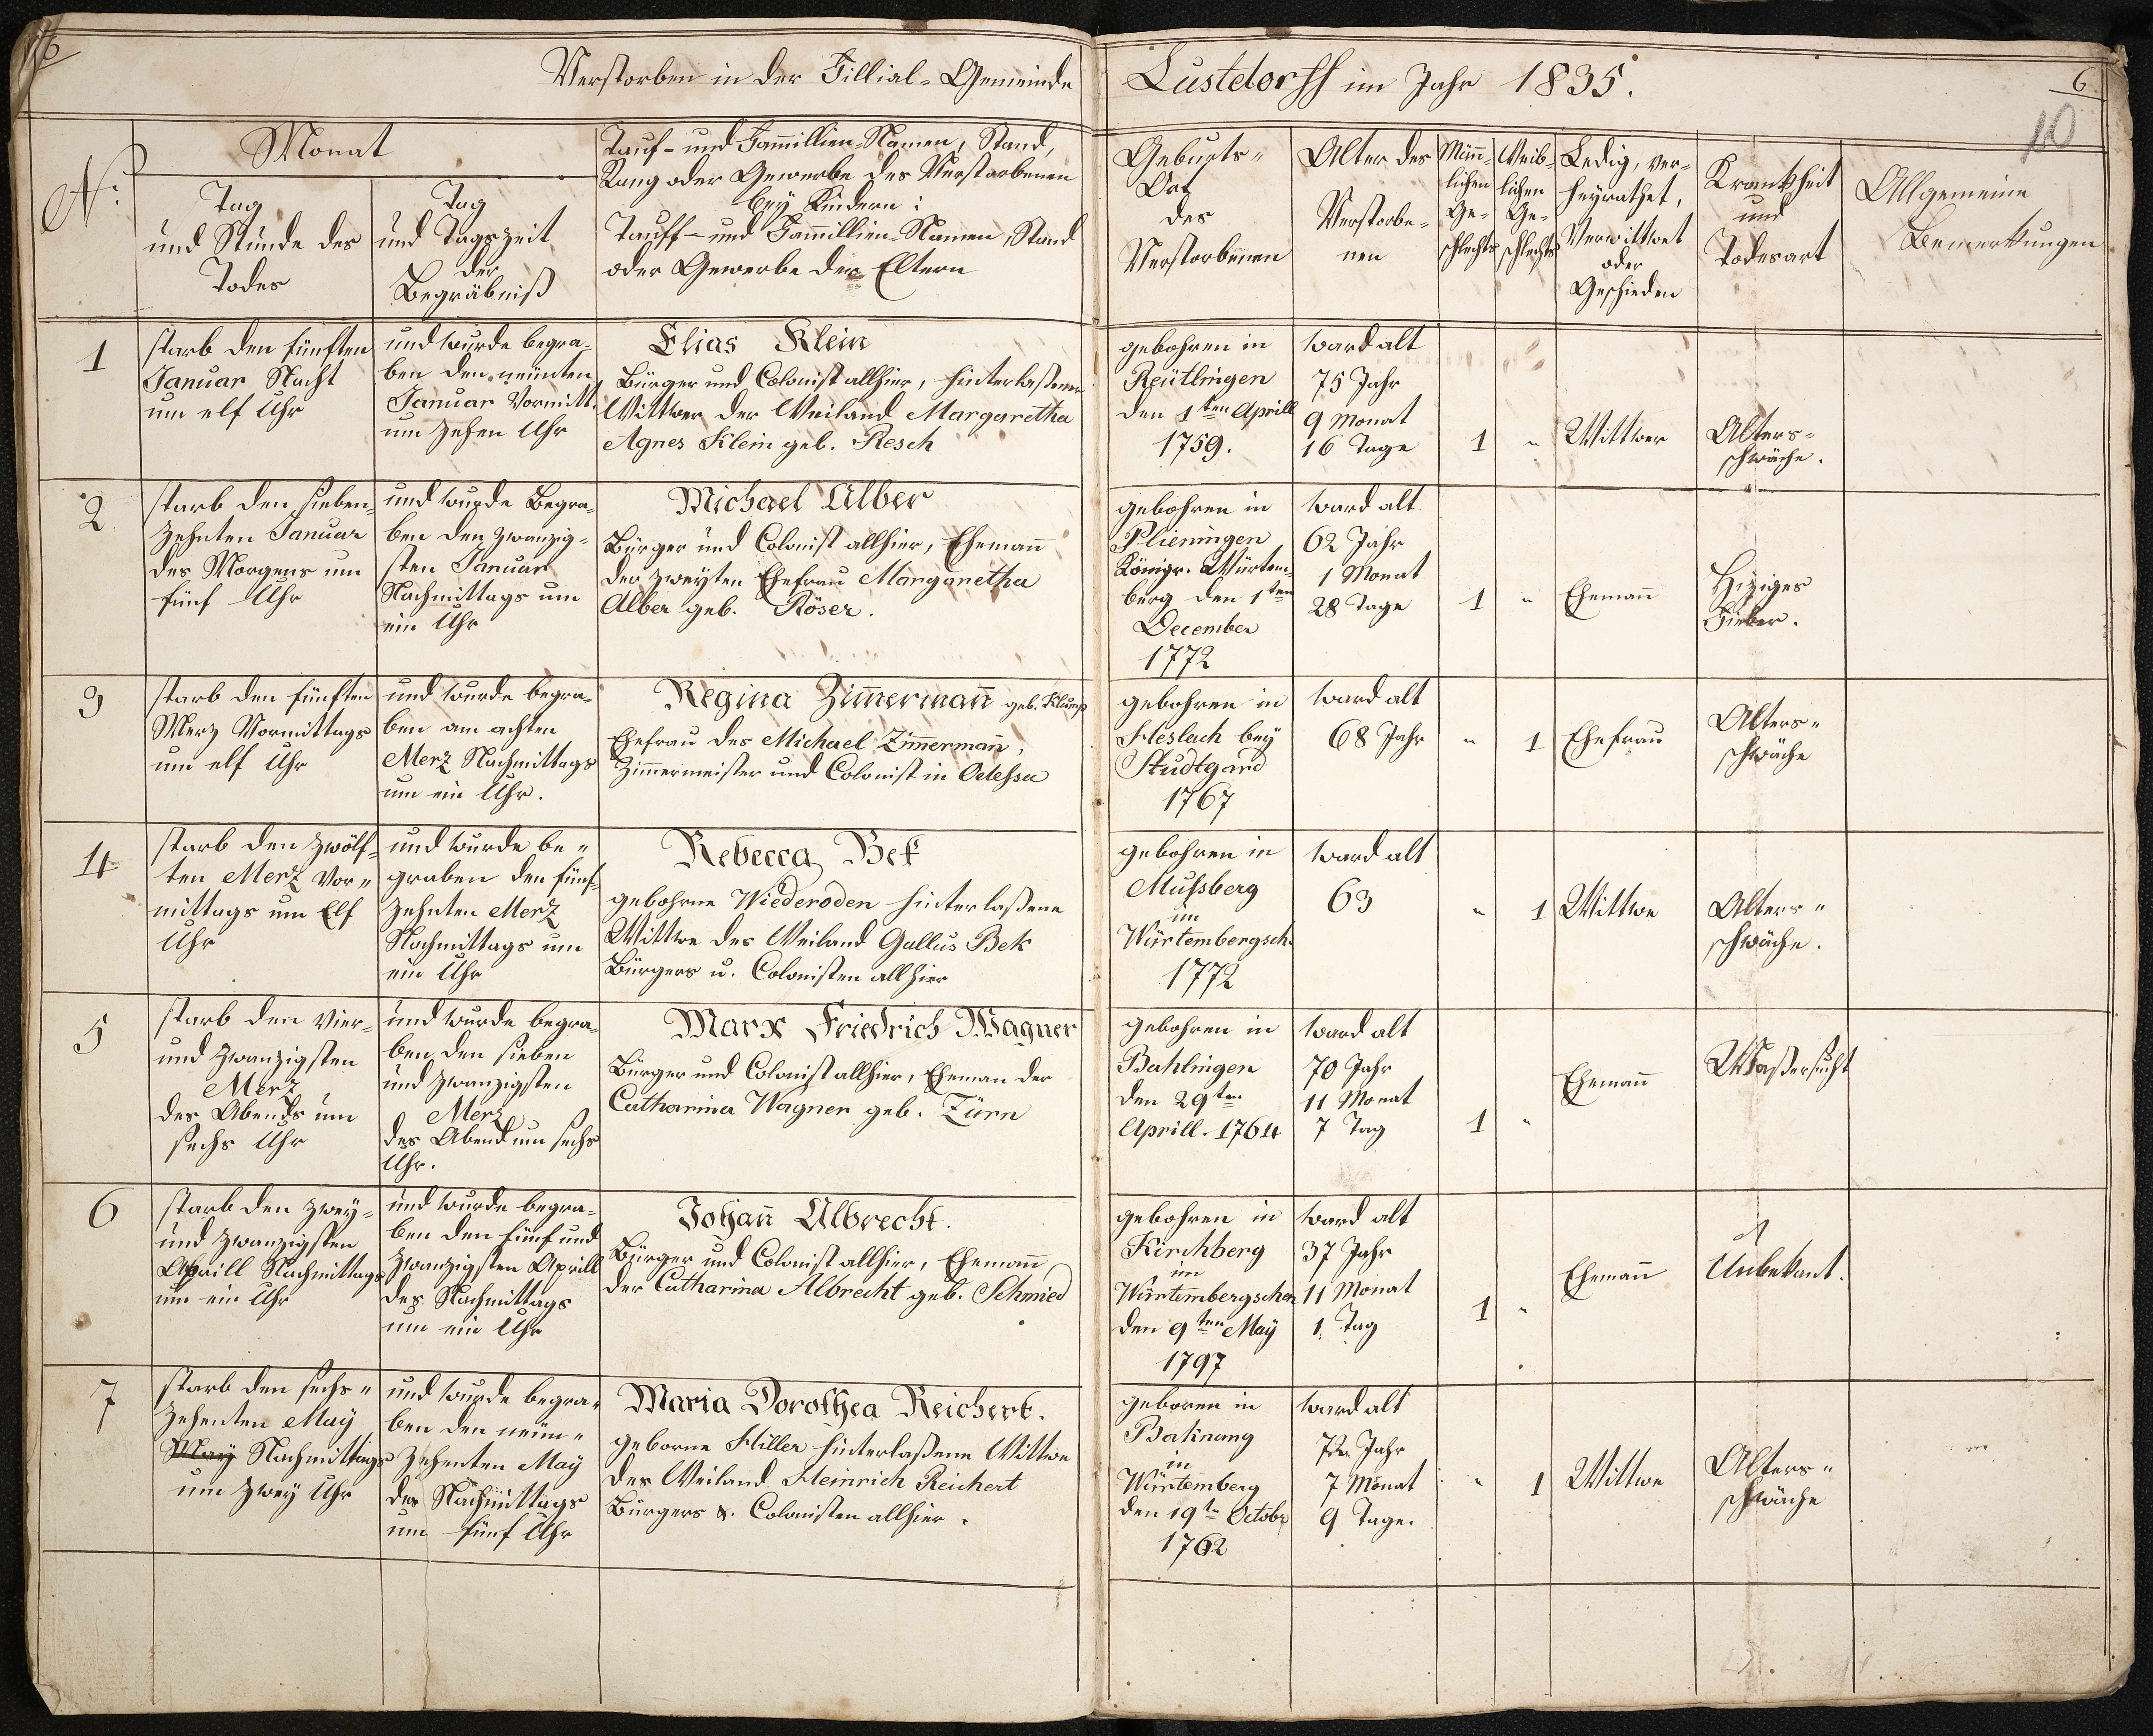 6
Verstorben in der Fillial-Gemeinde Lustdorff im Jahr 1835.
6
10
No:
Monat
Tag
und Stunde des
Todes
Tag
und Tagszeit
der
Begräbniß
Tauf- und Famillien-Namen, Stand,
Rang oder Gewerbe des Verstorbenen
bey Kindern:
Tauff- und Famillien-Namen, Stand
oder Gewerbe der Eltern
Geburts-
Ort
des
Verstorbenen
Alter des
Verstorbe-
nen
Männ-
lichen
Ge-
schlechts
Weib-
lichen
Ge-
schlechts
Ledig, ver-
heyrathet,
Verwittwet
oder
Geschieden
Krankheit
und
Todesart
Allgemeine
Bemerkungen
1
starb den fünften
Januar Nacht
um elf Uhr
und wurde begra-
ben den neünten
Januar Vormitt.
um zehen Uhr
Elias Klein
Bürger und Colonist allhier, hinterlaßener
Wittwer der Weiland Margaretha
Agnes Klein geb. Resch
gebohren in
Reütlingen
den 1ten Aprill
1759.
ward alt
75 Jahr
9 Monat
16 Tage
1
"
Wittwer
Alters-
schwäche.
2
starb den sieben-
zehnten Januar
des Morgens um
fünf Uhr
und wurde Begra-
ben den zwanzig-
sten Januar
Nachmittags um
ein Uhr
Michael Alber
Bürger und Colonist allhier, Ehemañ
der zweyten Ehefrau Margaretha
Alber geb. Röser.
gebohren in
Plieningen
Königr. Würtem-
berg den 1ten
December
1772
ward alt
62 Jahr
1 Monat
28 Tage
1
"
Ehemañ
Hiziges
Fieber.
3
starb den fünften
Merz Vormittags
um elf Uhr
und wurde begra-
ben am achten
Merz Nachmittags
um ein Uhr.
Regina Zim̃ermañ geb. Klump
Ehefrau des Michael Zim̃ermañ,
Zim̃ermeister und Colonist in Odeßa
gebohren in
Heslach bey
Studtgard
1767
ward alt
68 Jahr
"
1
Ehefrau
Alters-
schwäche
4
starb den zwölf-
ten Merz Vor-
mittags um Elf
Uhr
und wurde be-
graben den fünf-
zehnten Merz
Nachmittags um
ein Uhr
Rebecca Bek
gebohrne Wiederoden hinterlaßene
Wittwe des Weiland Gallus Bek
Bürgers u. Colonisten allhier
gebohren in
Mußberg
im
Würtembergsch.
1772
ward alt
63
"
1
Wittwe
Alters-
schwäche.
5
starb den Vier-
und zwanzigsten
Merz
des Abends um
sechs Uhr
und wurde begra-
ben den sieben
und zwanzigsten
Merz
des Abend um sechs
Uhr.
Marx Friedrich Wagner
Bürger und Colonist allhier, Eheman der
Catharina Wagner geb. Zürn
gebohren in
Bahlingen
den 29ten
Aprill. 1764
ward alt
70 Jahr
11 Monat
7 Tag
1
"
Ehemañ
Waßersucht
6
starb den zwey-
und zwanzigsten
Aprill Nachmittags
um ein Uhr
und wurde begra-
ben den fünf und
zwanzigsten Aprill
des Nachmittags
um ein Uhr
Johañ Albrecht.
Bürger und Colonist allhier, Ehemañ
der Catharina Albrecht geb. Schmied
gebohren in
Kirchberg
im
Würtembergschen
den 9ten May
1797
ward alt
37 Jahr
11 Monat
1. Tag
1
"
Ehemañ
Unbekant.
7
starb den sechs-
zehenten May
May Nachmittags
um zwey Uhr
und wurde begra-
ben den neün-
zehenten May
des Nachmittags
um fünf Uhr
Maria Dorothea Reichert.
geborne Hiller hinterlaßene Wittwe
des Weiland Heinrich Reichert
Bürgers &. Colonisten allhier.
geboren in
Baknang
in
Würtemberg
den 19ten Octobr
1762
ward alt
72 Jahr
7 Monat
9 Tage.
"
1
Wittwe
Alters-
schwäche